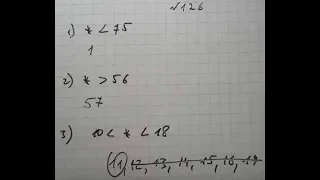 √126
1) * < 75
1
2) * > 56
57
3) 10 < * < 18
(11, 12, 13, 14, 15, 16, 17